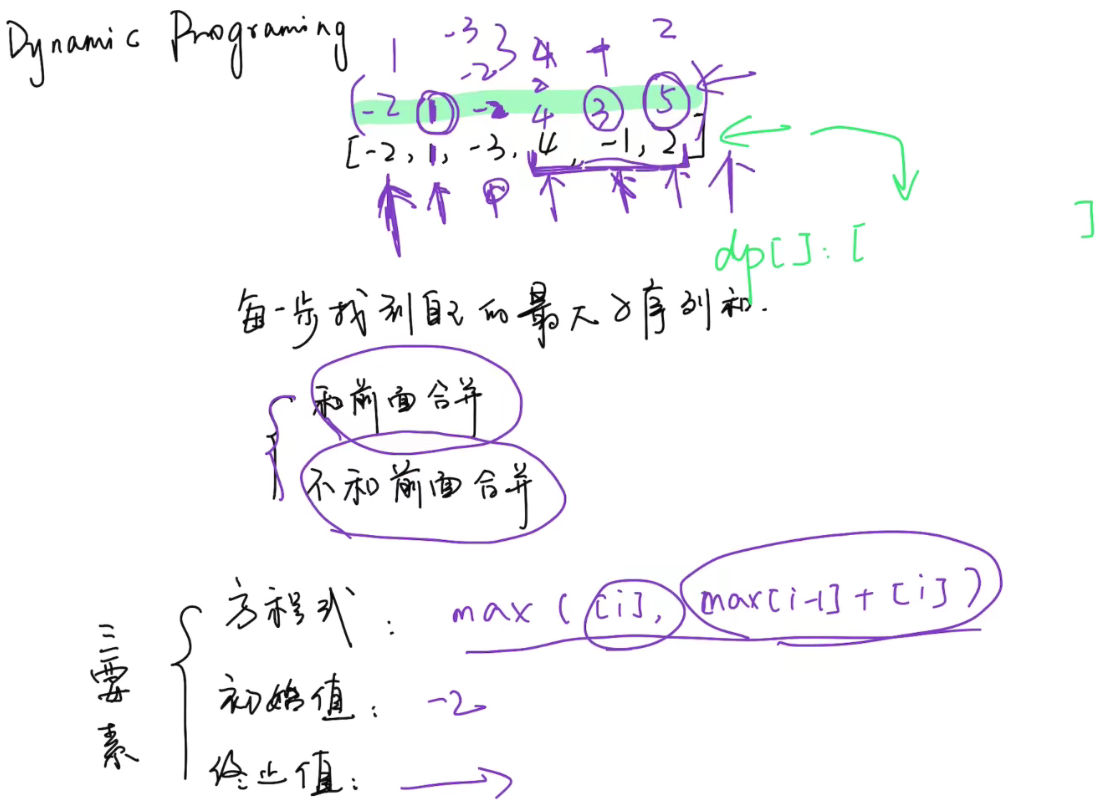 Dynamic Programing
1 -3 3 4 -1 2
-2
-2 1 -2 4 3 5
[-2, 1, -3, 4, -1, 2]
dp[]: [ ]
每一步找到自己的最大子序列和.
和前面合并
不和前面合并
三要素
方程式: max ( [i], max[i-1] + [i] )
初始值: -2
终止值: